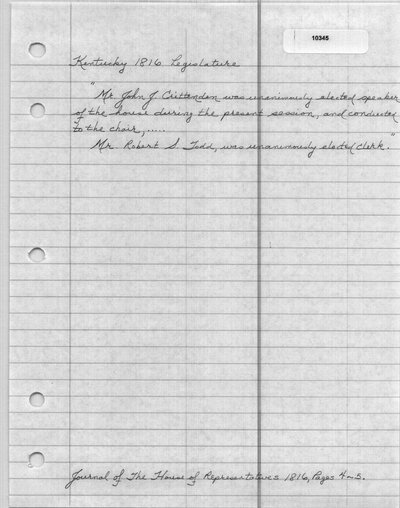 10345
Kentucky 1816 Legislature
"Mr. John J. Crittenden was unanimously elected speaker
of the house during the present session, and conducted
to the chair, .....
Mr. Robert S. Todd, was unanimously elected clerk."
Journal of The House of Representatives 1816, Pages 4-5.